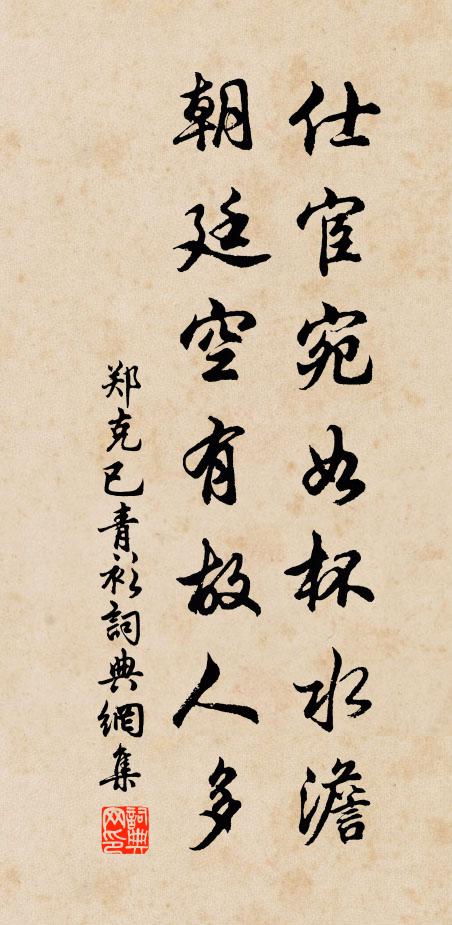 仕宦宛如杯水澹
朝廷空有故人多
郑克己青衫詞典網集
詞典
网印